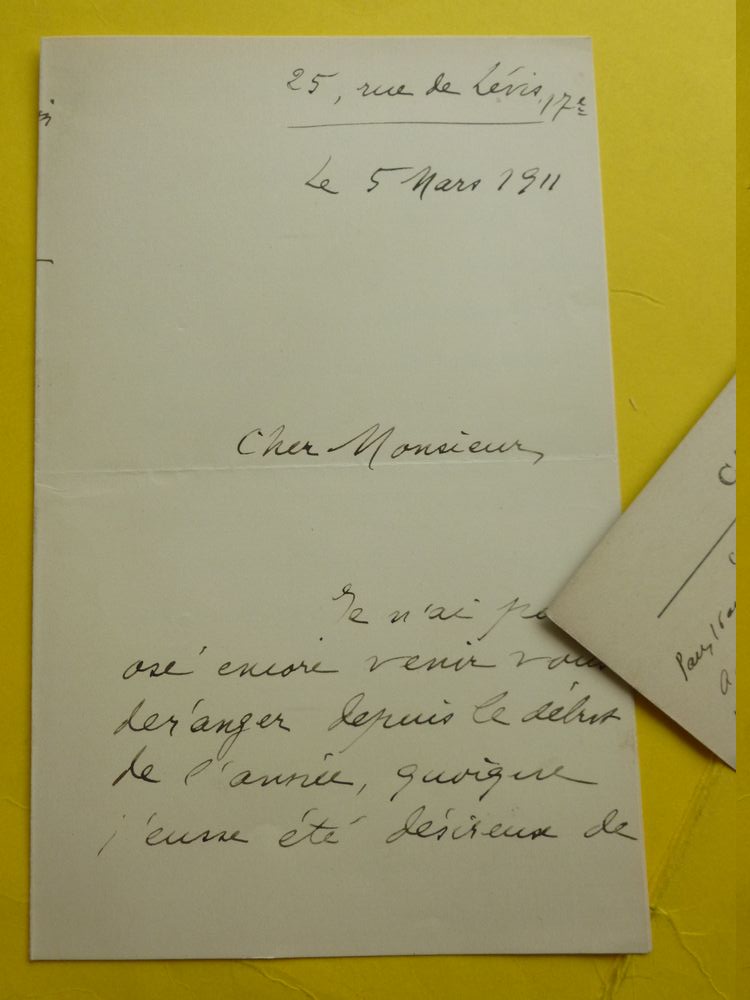 25, rue de Lévis, 17e
Le 5 Mars 1911
Cher Monsieur,
Je n'ai
osé encore venir vous
deránger depuis le début
de l'année, quoique
j'eusse été désireux de